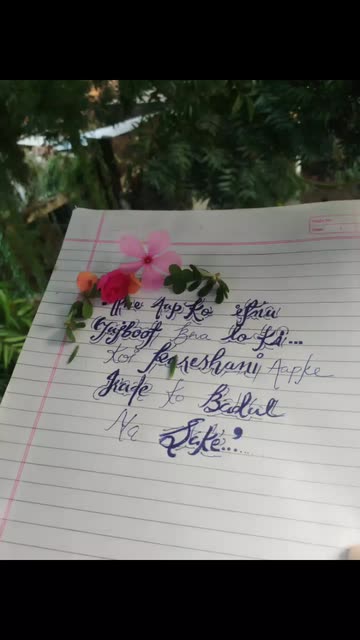 Page No.
Date
Aap Ko itna
Majboot Bna lo Ki...
koi Pareshani Aapke
Irade ko Badal
Na Sake...’